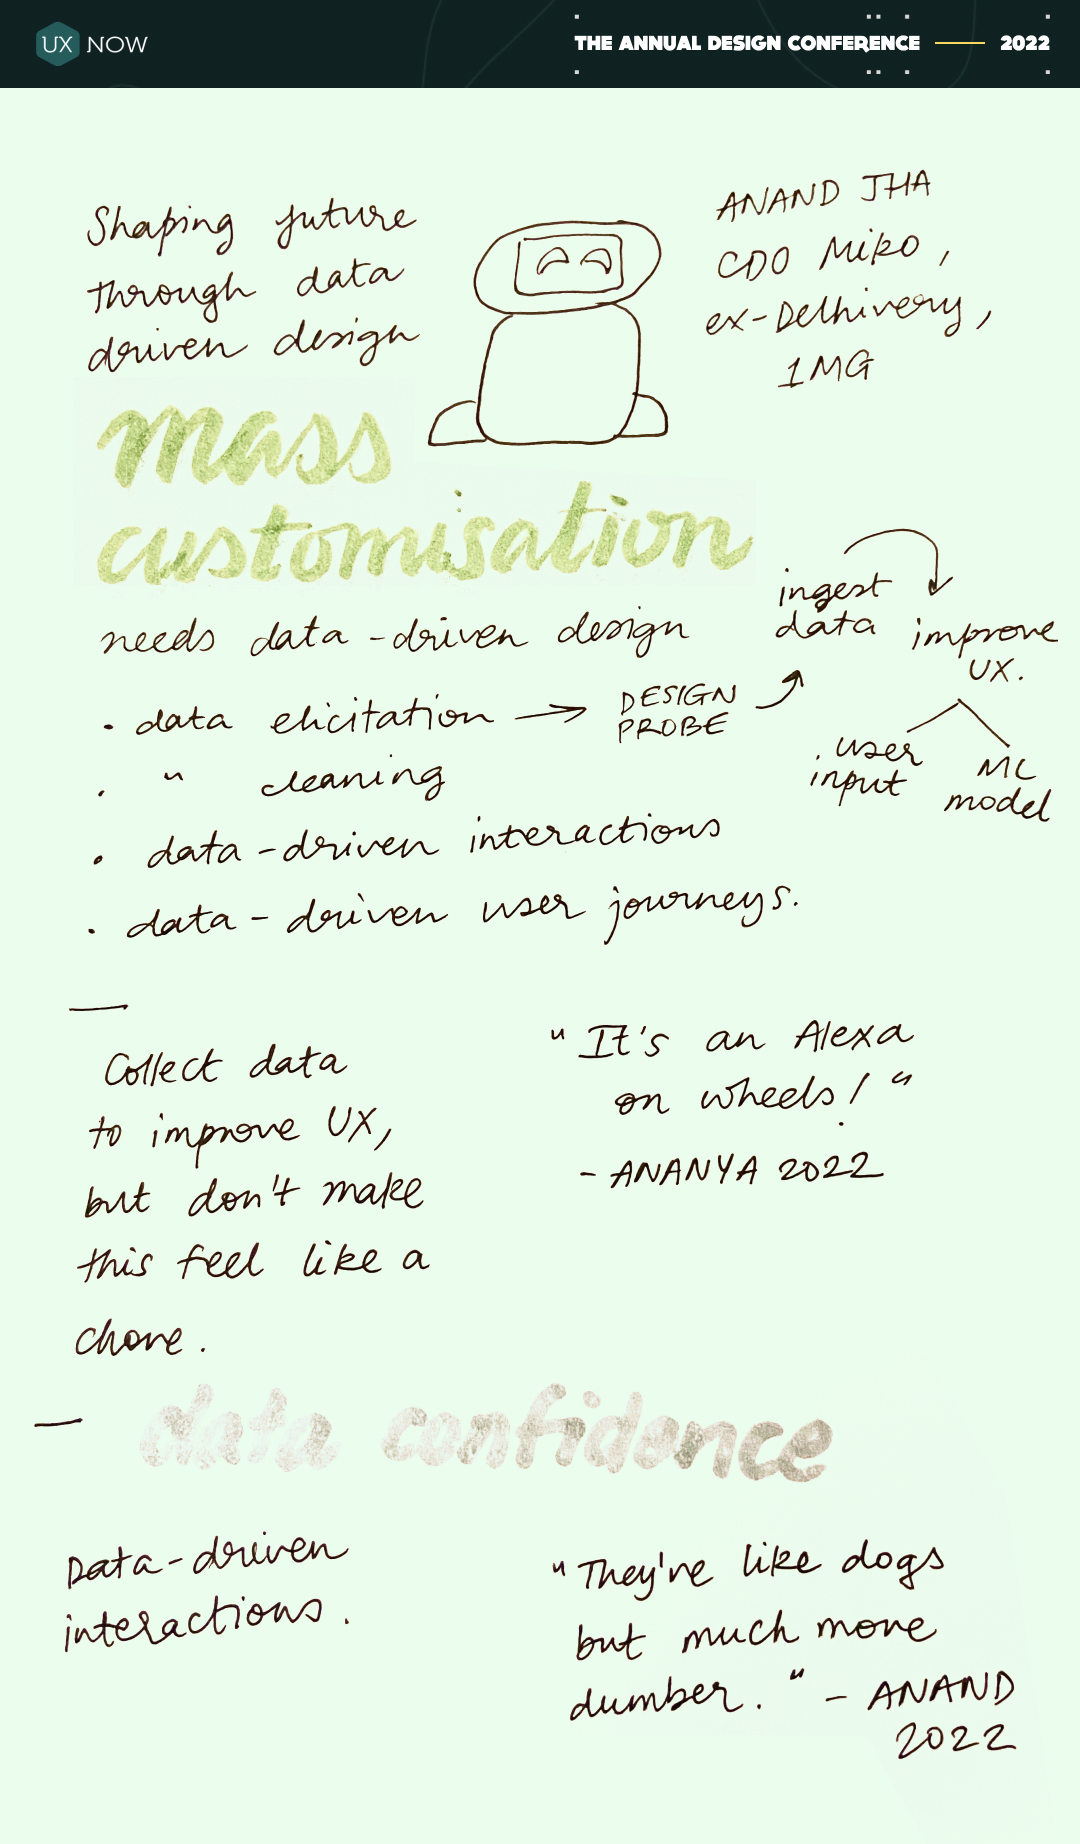 UX NOW
THE ANNUAL DESIGN CONFERENCE — 2022
Shaping future
through data
driven design
ANAND JHA
CDO Miko,
ex-Delhivery,
1MG
mass
customisation
needs data-driven design
ingest
data
improve
UX.
• data elicitation → DESIGN
PROBE
user
input
ML
model
• " cleaning
• data-driven interactions
• data-driven user journeys.
—
Collect data
to improve UX,
but don't make
this feel like a
chore.
"It's an Alexa
on wheels!"
- ANANYA 2022
— data confidence
Data-driven
interactions.
"They're like dogs
but much more
dumber." - ANAND
2022